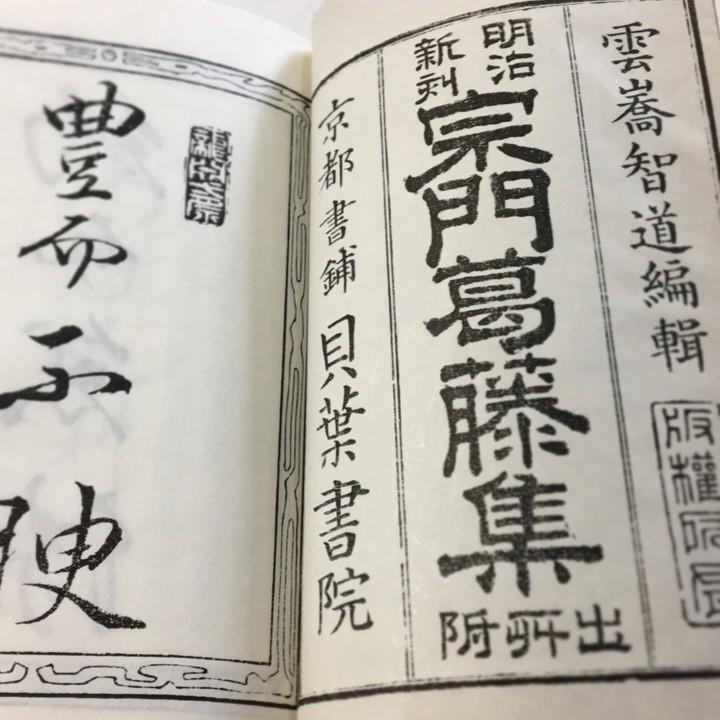 雲嶠智道編輯
版權所有
明治
新刻
宗門葛藤集
出所附
京都書鋪 貝葉書院
豊而不腴